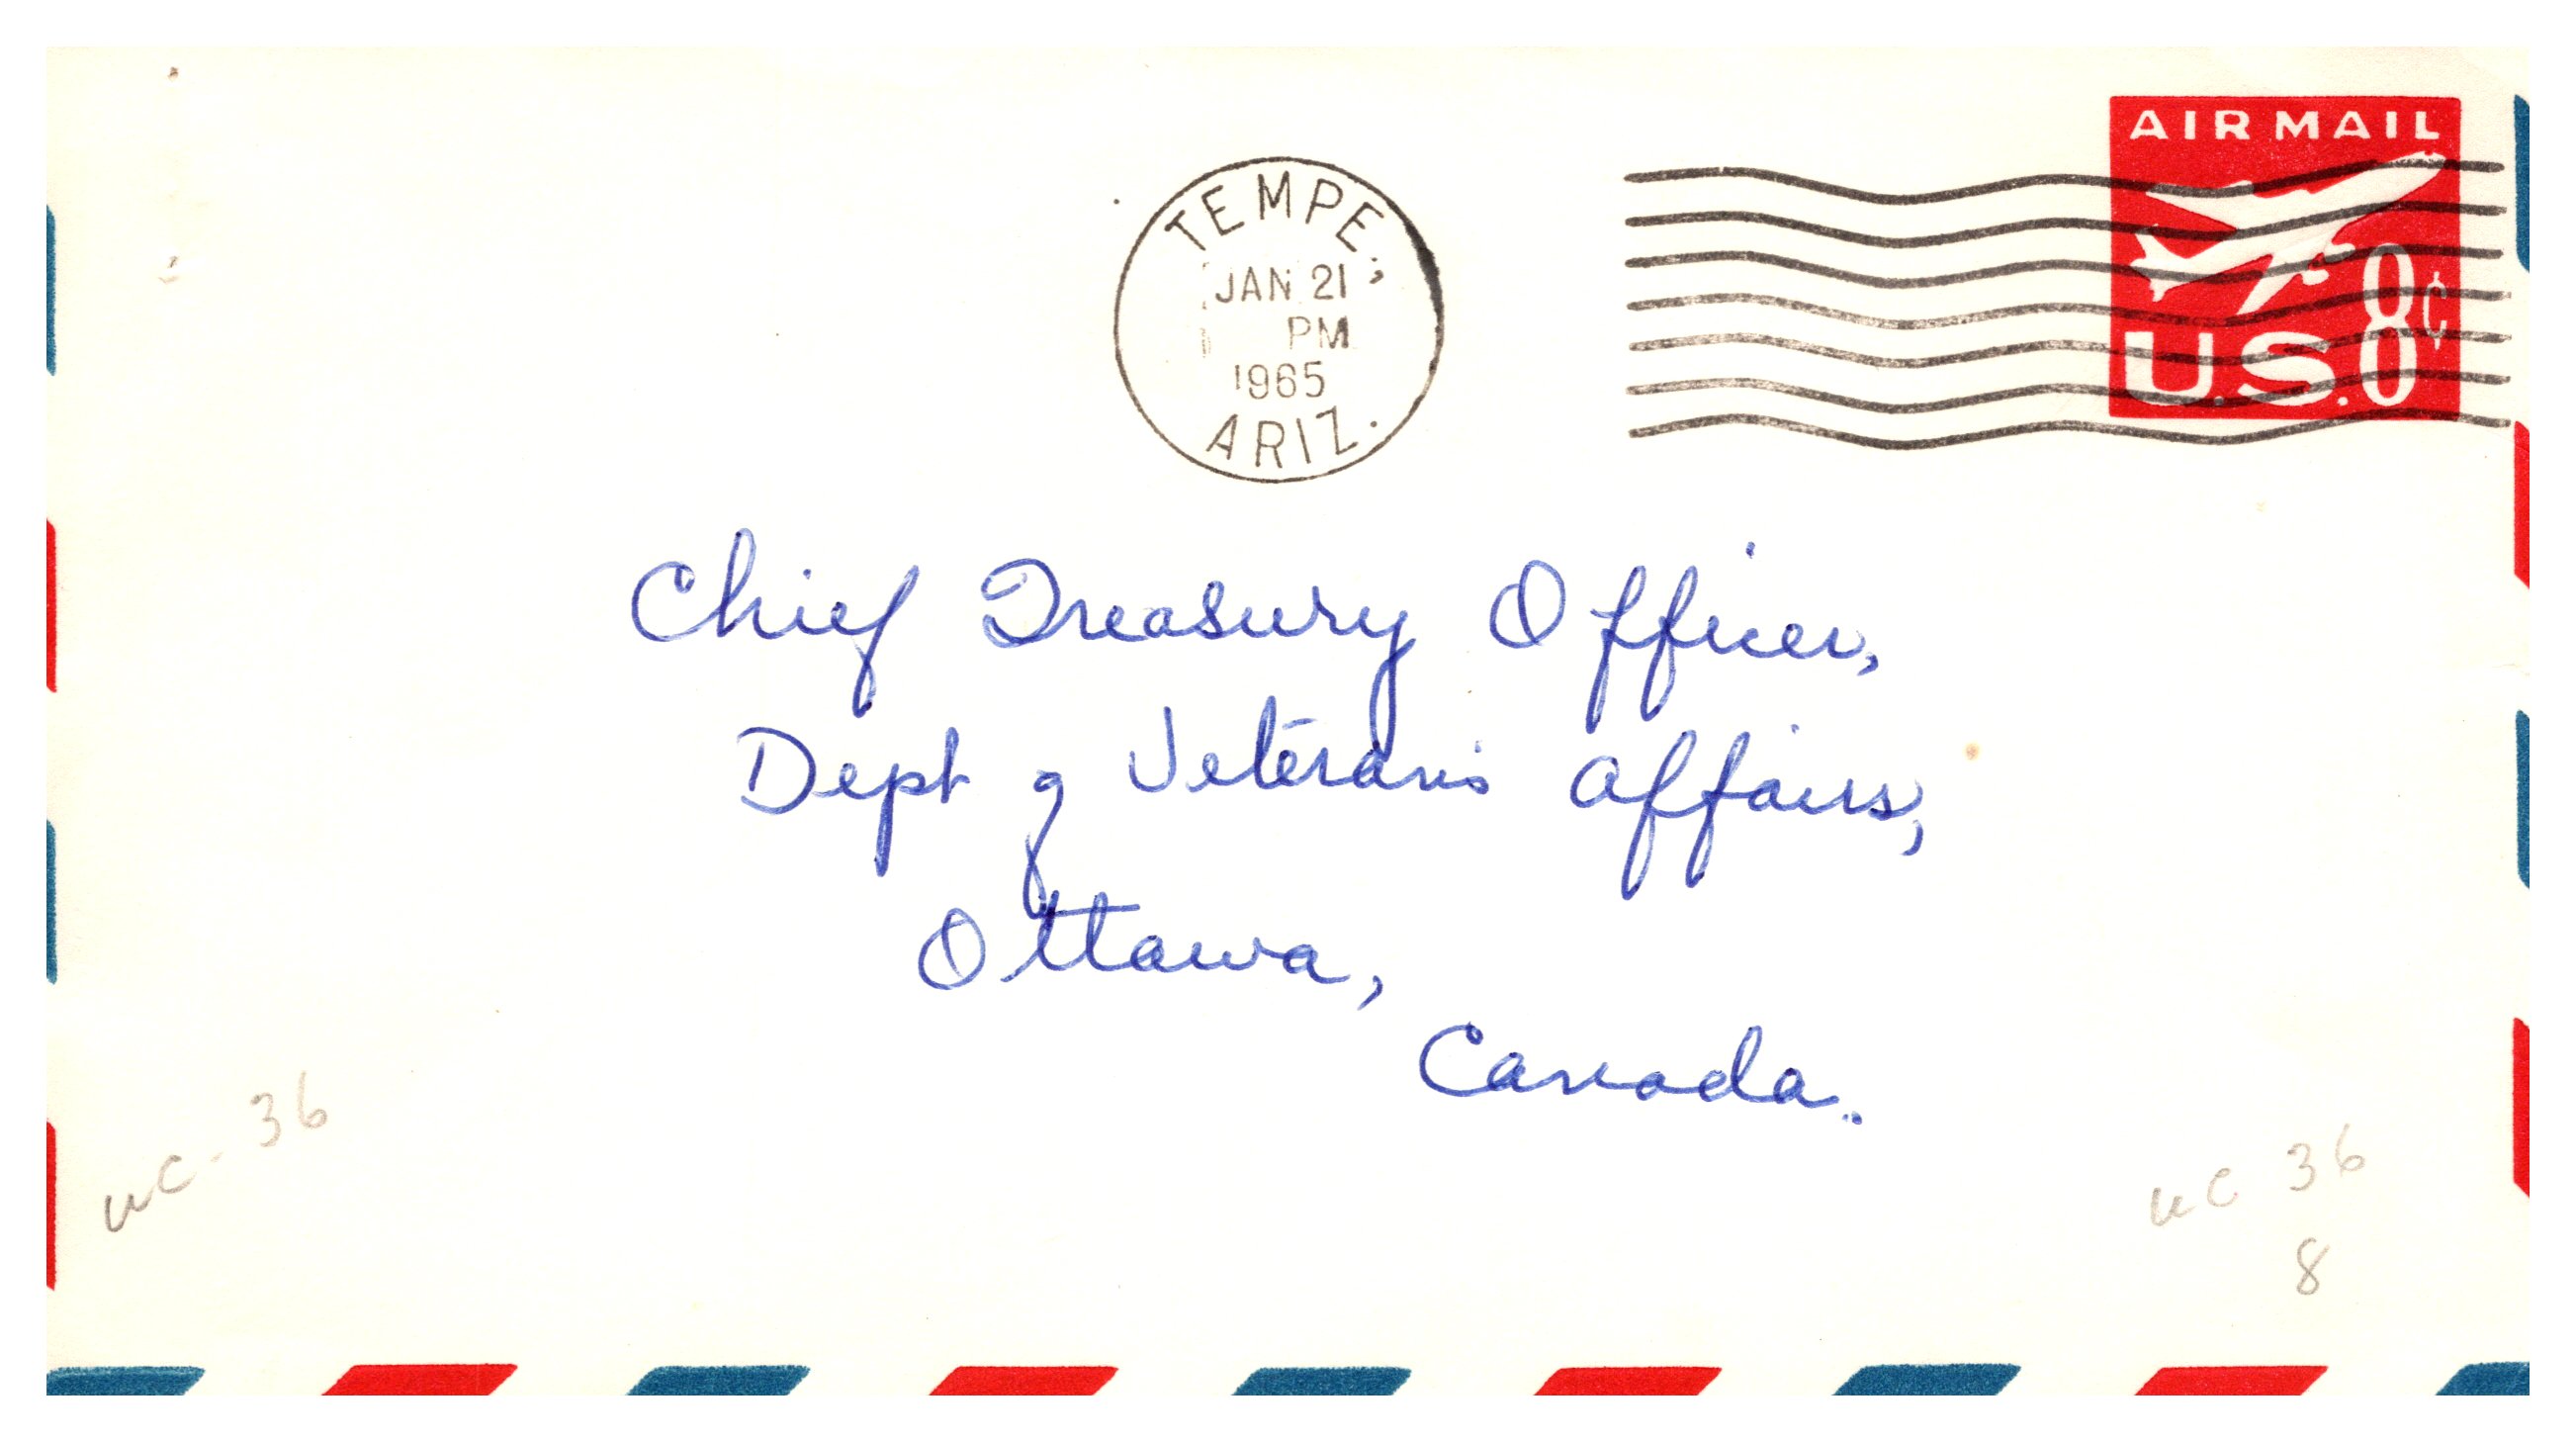 AIR MAIL
U.S. 8¢
TEMPE,
JAN 21
PM
1965
ARIZ.
Chief Treasury Officer,
Dept of Veterans Affairs,
Ottawa,
Canada.
UC-36
UC 36
8